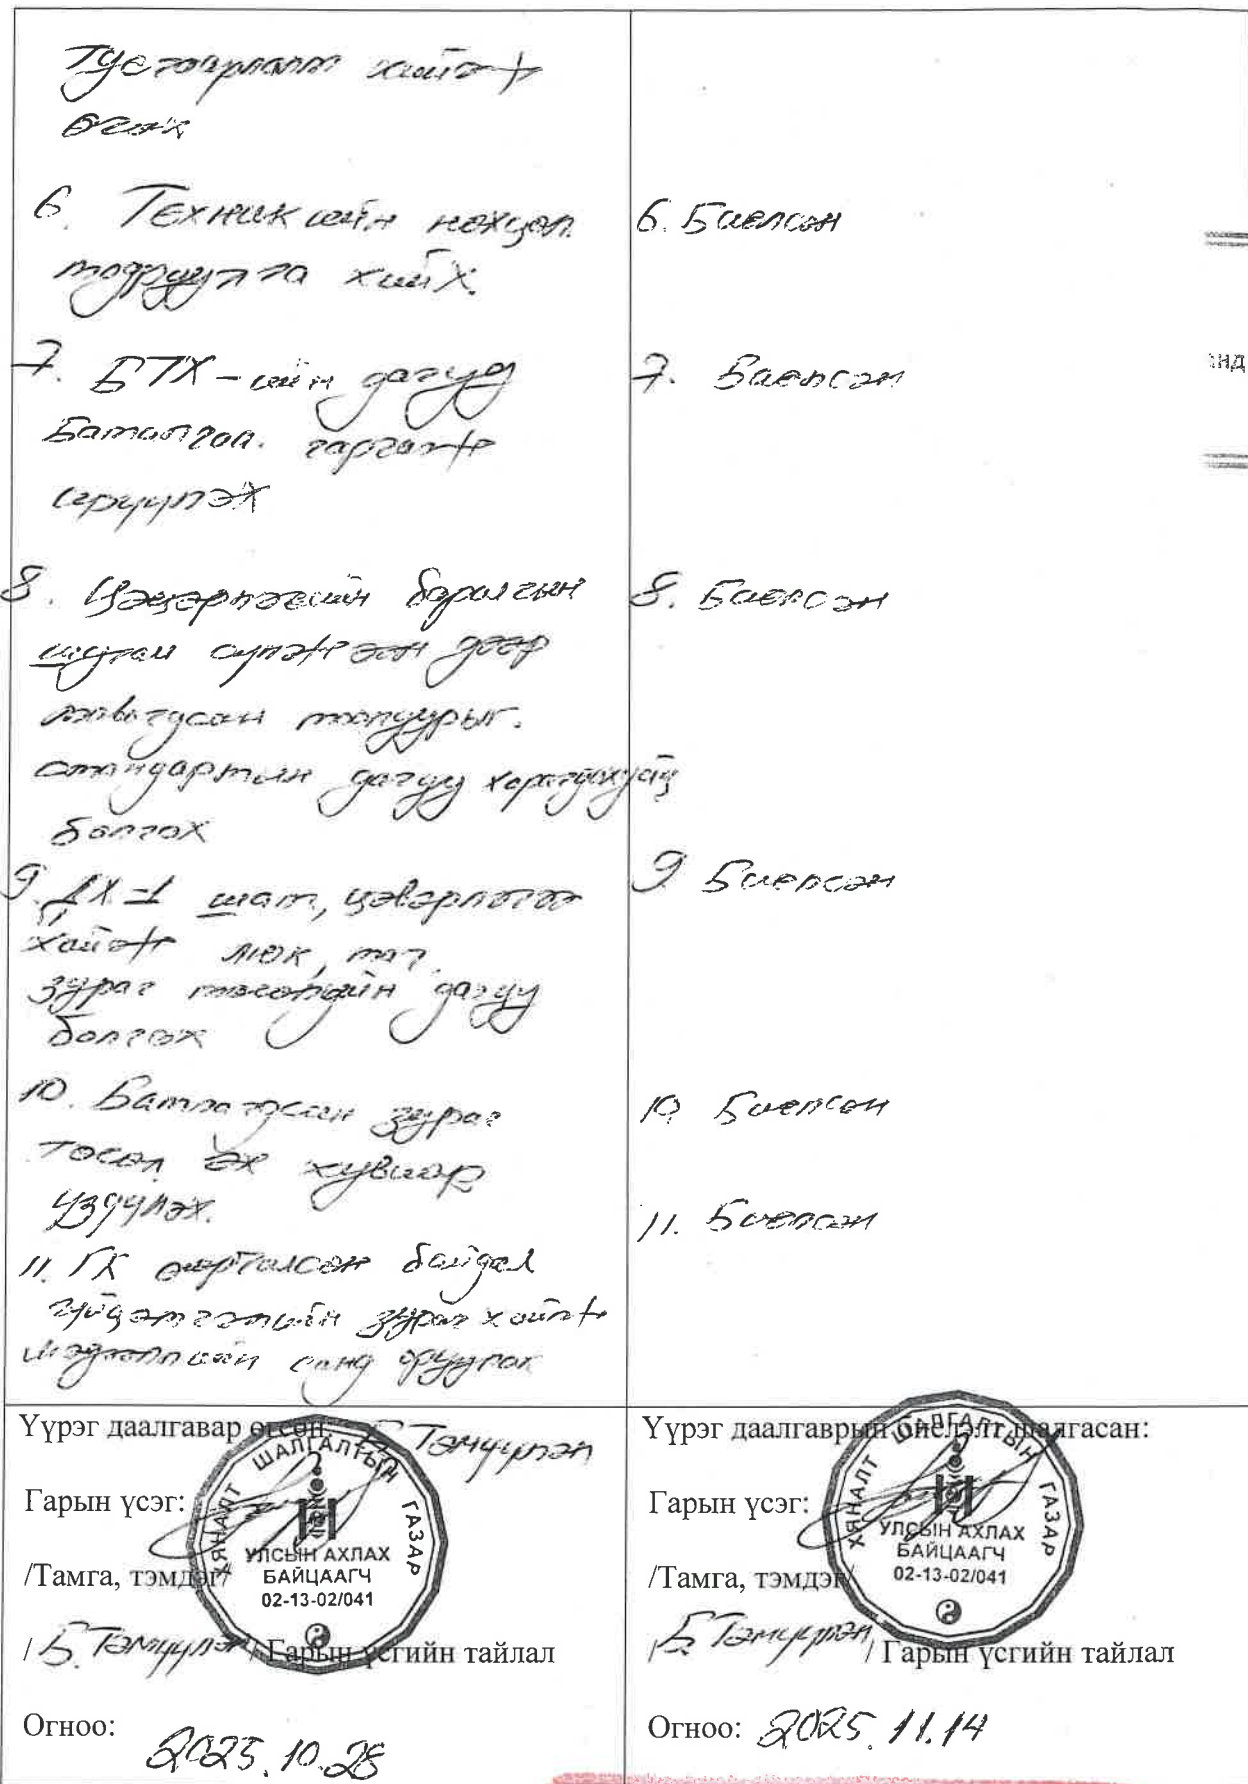 Тусгаарлалт хийж
өгөх
6. Техникийн нөхцөл
тодруулга хийх.
7. БТХ-ийн дагуу
Баталгаа. гаргаж
ирүүлэх
8. Цэцэрлэгийн барилгын
шугам сүлжээн дээр
тавигдсан тоолуурыг.
стандартын дагуу харагдахуйц
болгох
9. ДХ-1 шат, цэвэрлэгээ
хийж люк, таг.
зураг төсөлийн дагуу
болгох
10. Батлагдсан зураг
төсөл эх хувиар
үзүүлэх.
11. ГХ өөрчлөлт байдал
гүйцэтгэлийн зураг хийж
мэдээллийн санд оруулах
6. Биелсэн
7. Биелсэн
8. Биелсэн
9. Биелсэн
10. Биелсэн
11. Биелсэн
анд
Үүрэг даалгавар өгсөн: Б Тэмүүлэн
Гарын үсэг:
/Тамга, тэмдэг/
/Б. Тэмүүлэн/ Гарын үсгийн тайлал
Огноо: 2025.10.28
ХЯНАЛТ ШАЛГАЛТЫН ГАЗАР
УЛСЫН АХЛАХ
БАЙЦААГЧ
02-13-02/041
Үүрэг даалгаврын биелэлт шалгасан:
Гарын үсэг:
/Тамга, тэмдэг/
/Б Тэмүүлэн/ Гарын үсгийн тайлал
Огноо: 2025.11.14
ХЯНАЛТ ШАЛГАЛТЫН ГАЗАР
УЛСЫН АХЛАХ
БАЙЦААГЧ
02-13-02/041